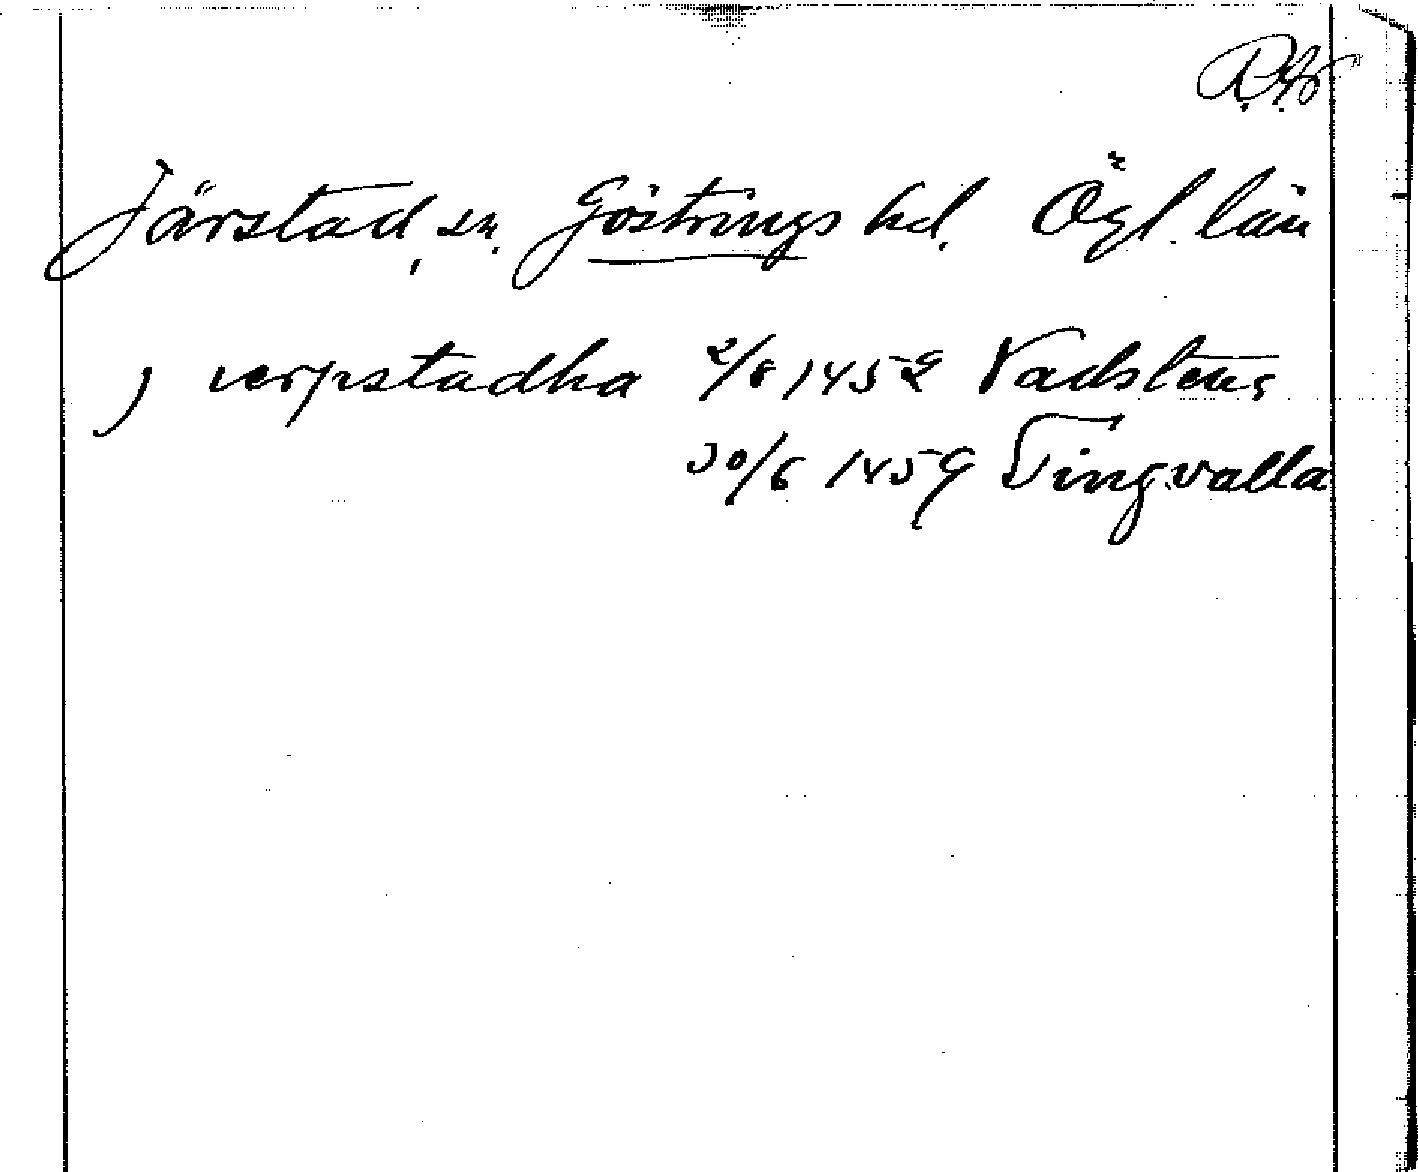 Järstad, sn. Göstrings hd. Ögl. län
j verpstadha 2/8 1452 Vadstena
30/6 1459 Tingvalla